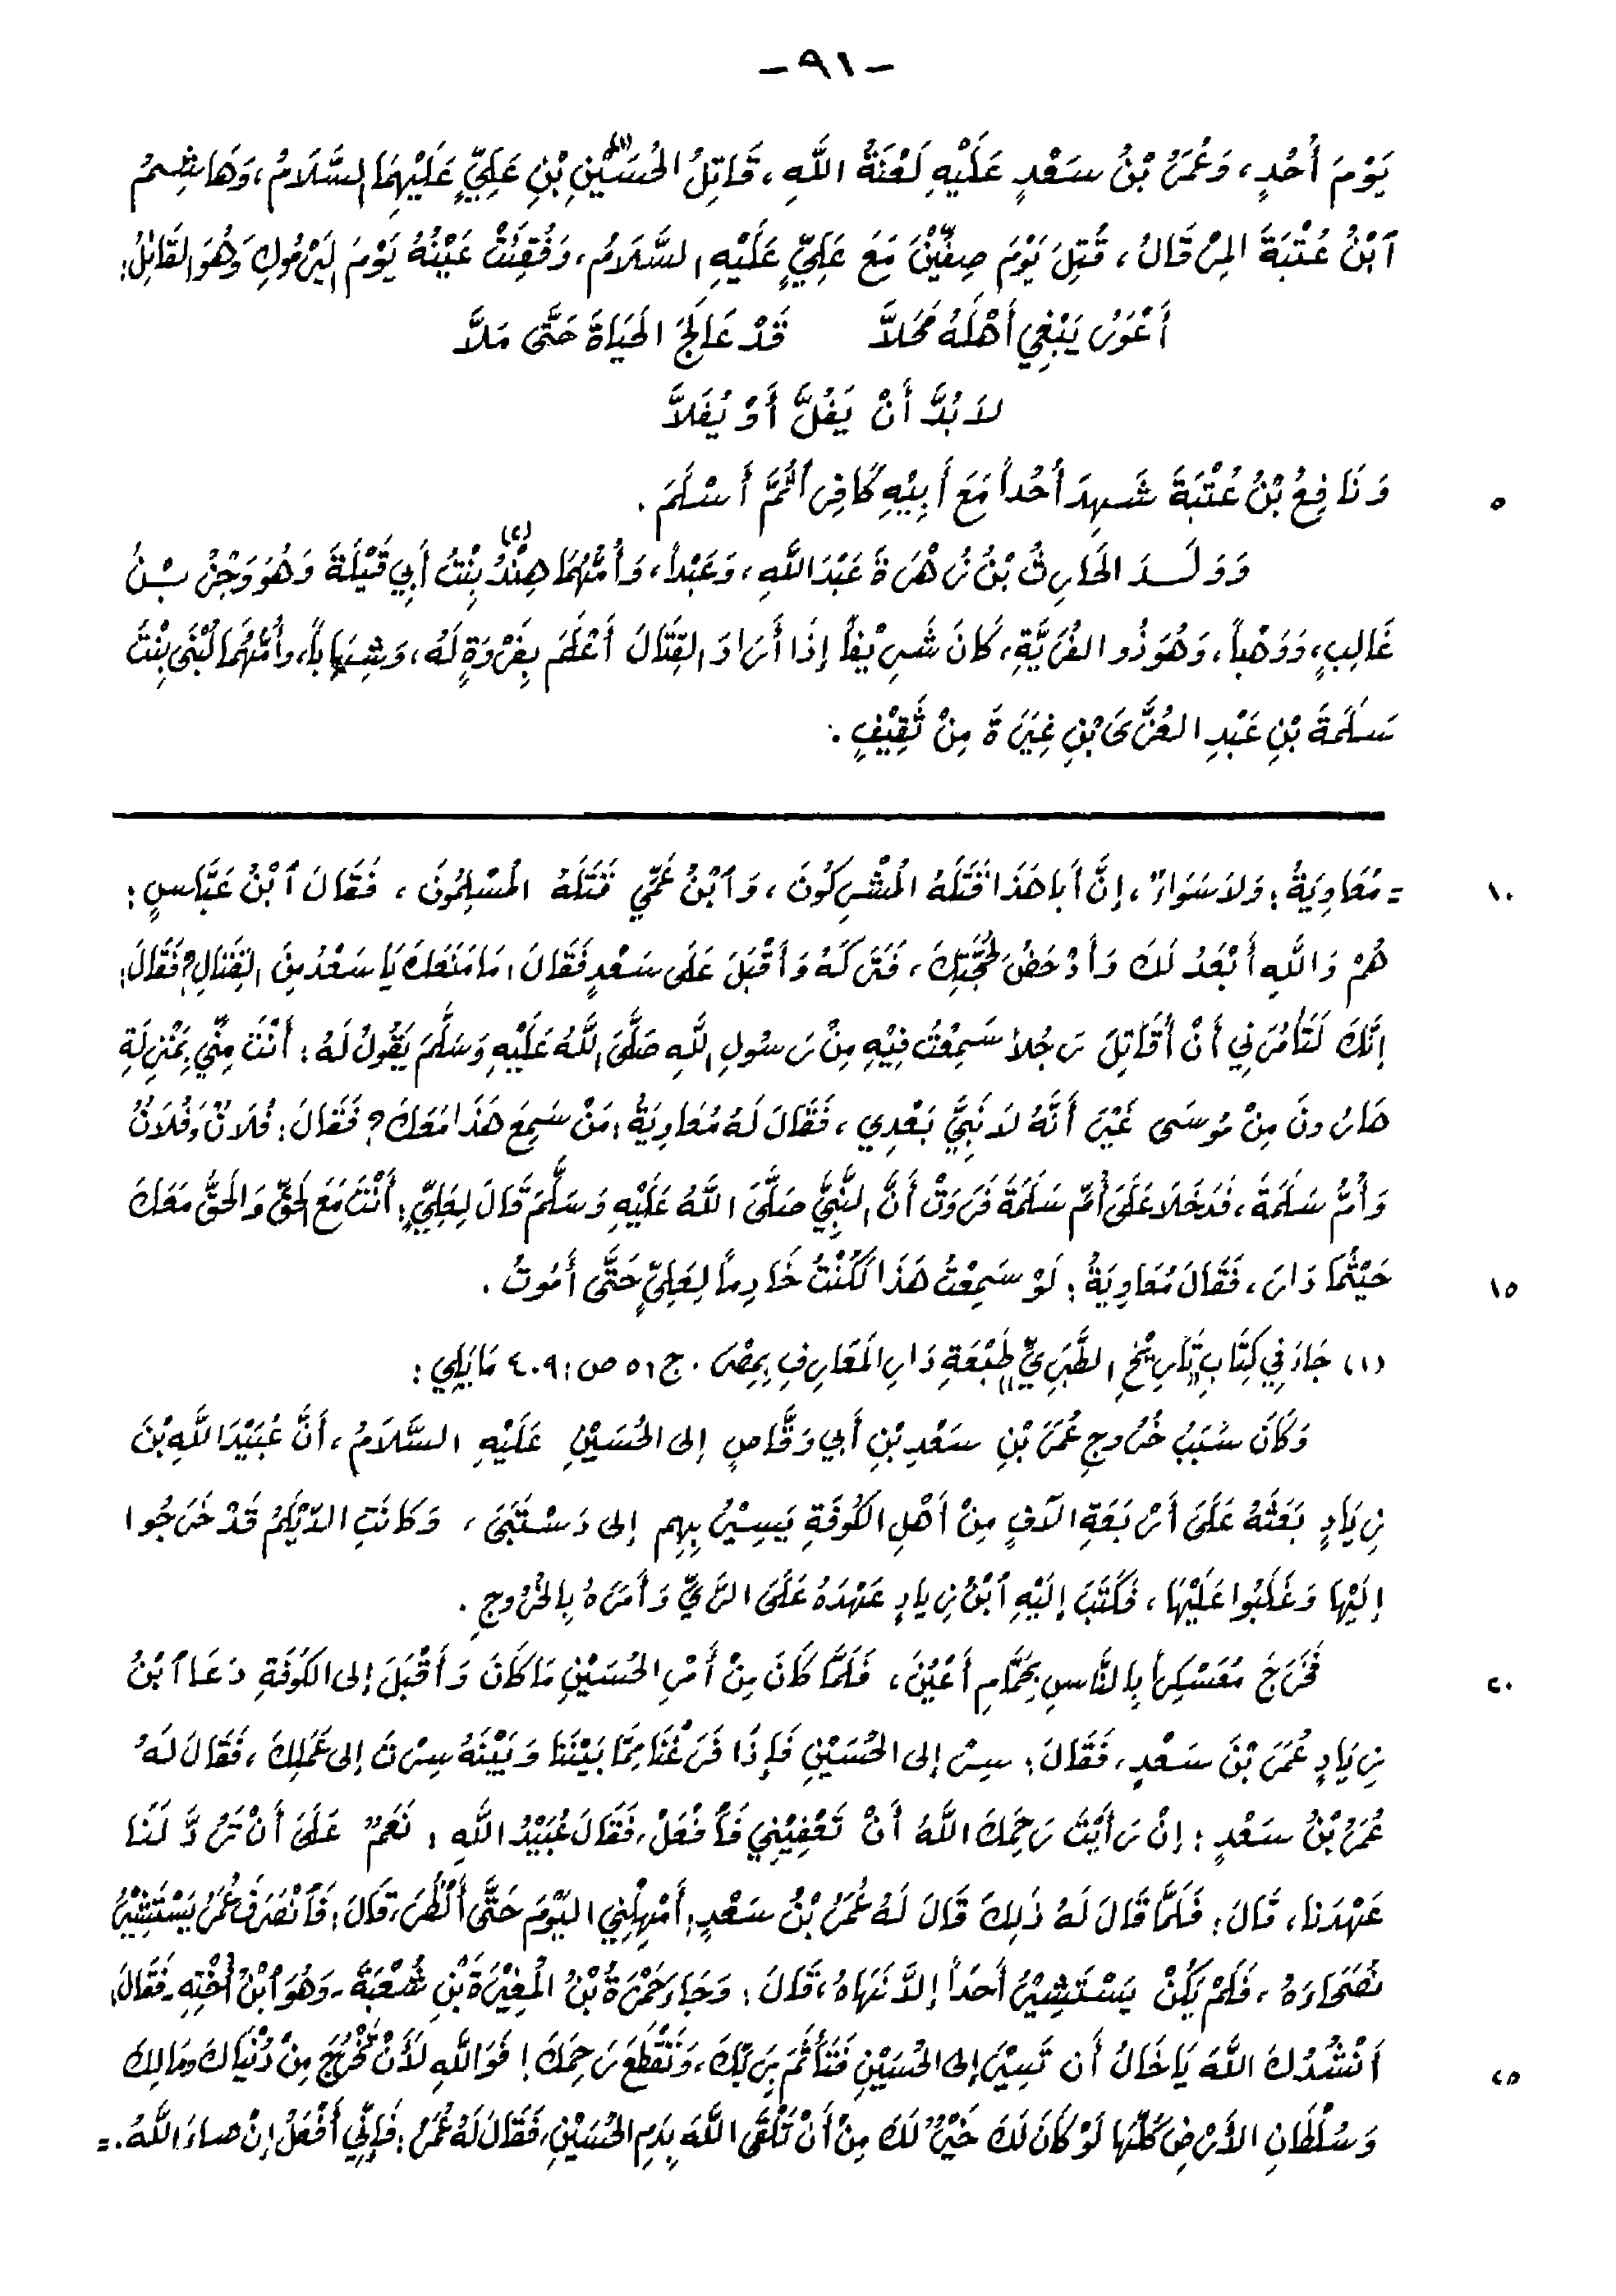 - ٩١ -
يَوْمَ أُحُدٍ، وَعُمَرُ بْنُ سَعْدٍ عَلَيْهِ لَعْنَةُ اللَّهِ، قَاتِلُ الحُسَيْنِ(١) بْنِ عَلِيٍّ عَلَيْهِمَا السَّلَامُ، وَهَاشِمُ
ٱبْنُ عُتْبَةَ المِرْقَالُ، قُتِلَ يَوْمَ صِفِّيْنَ مَعَ عَلِيٍّ عَلَيْهِ السَّلَامُ، وَفُقِئَتْ عَيْنُهُ يَوْمَ اليَرْمُوكِ وَهُوَ القَائِلُ:
أَعْوَرُ يَبْغِي أَهْلَهُ مَحَلاَّ قَدْ عَالَجَ الحَيَاةَ حَتَّى مَلاَّ
لاَ بُدَّ أَنْ يَفُلَّ أَوْ يُفَلاَّ
٥ وَنَافِعُ بْنُ عُتْبَةَ شَهِدَ أُحُداً مَعَ أَبِيْهِ كَافِراً ثُمَّ أَسْلَمَ.
وَوَلَدَ الحَارِثُ بْنُ زُهْرَةَ عَبْدَ اللَّهِ، وَعَبْداً، وَأُمُّهُمَا هِنْدُ(٢) بِنْتُ أَبِي قَيْلَةَ وَهُوَ وَجْزُ بْنُ
غَالِبٍ، وَوَهْباً، وَهُوَ ذُو الفُرَيَّةِ، كَانَ شَرِيْفاً إذَا أَرَادَ القِتَالَ أَعْلَمَ بِفَرْوَةٍ لَهُ، وَشِهَاباً، وأُمُّهُمَا لُبْنَى بِنْتُ
سَلَمَةَ بْنِ عَبْدِ العُزَّى بْنِ غِيَرَةَ مِنْ ثَقِيْفٍ.
١٠ = مُعَاوِيَةُ: وَلاَ سَوَاءٌ، إنَّ أَبا هَذَا قَتَلَهُ المُشْرِكُونَ، وَٱبْنُ عَمِّي قَتَلَهُ المُسْلِمُونَ، فَقَالَ ٱبْنُ عَبَّاسٍ:
هُمْ وَاللَّهِ أَبْعَدُ لَكَ وَأَدْحَضُ لِحُجَّتِكَ، فَتَرَكَهُ وَأَقْبَلَ عَلَى سَعْدٍ فَقَالَ: مَا مَنَعَكَ يَا سَعْدُ مِنَ القِتَالِ؟ فَقَالَ:
إنَّكَ لَتَأْمُرَنِي أَنْ أُقَاتِلَ رَجُلاً سَمِعْتُ فِيْهِ مِنْ رَسُولِ اللَّهِ صَلَّى اللَّهُ عَلَيْهِ وَسَلَّمَ يَقُولُ لَهُ: أَنْتَ مِنِّي بِمَنْزِلَةِ
هَارُونَ مِنْ مُوسَى غَيْرَ أَنَّهُ لاَ نَبِيَّ بَعْدِي، فَقَالَ لَهُ مُعَاوِيَةُ: مَنْ سَمِعَ هَذَا مَعَكَ؟ فَقَالَ: فُلاَنٌ وَفُلاَنٌ
وَأُمُّ سَلَمَةَ، فَدَخَلاَ عَلَى أُمِّ سَلَمَةَ فَرَوَتْ أَنَّ النَّبِيَّ صَلَّى اللَّهُ عَلَيْهِ وَسَلَّمَ قَالَ لِعَلِيٍّ: أَنْتَ مَعَ الحَقِّ وَالحَقُّ مَعَكَ
١٥ حَيْثُمَا دَارَ، فَقَالَ مُعَاوِيَةُ: لَوْ سَمِعْتُ هَذَا لَكُنْتُ خَادِماً لِعَلِيٍّ حَتَّى أَمُوتُ.
(١) جَاءَ فِي كِتَابِ "تَارِيْخِ الطَّبَرِيِّ" طَبْعَةِ دَارِ المَعَارِفِ بِمِصْرَ. ج: ٥ ص: ٤٠٩ مَا يَلِي:
وَكَانَ سَبَبُ خُرُوجِ عُمَرَ بْنِ سَعْدِ بْنِ أَبِي وَقَّاصٍ إلى الحُسَيْنِ عَلَيْهِ السَّلَامُ، أَنَّ عُبَيْدَ اللَّهِ بْنَ
زِيَادٍ بَعَثَهُ عَلَى أَرْبَعَةِ آلاَفٍ مِنْ أَهْلِ الكُوفَةِ يَسِيْرُ بِهِم إلى دَسْتَبَى، وَكَانَتِ الدَّيْلَمُ قَدْ خَرَجُوا
إلَيْهَا وَغَلَبُوا عَلَيْهَا، فَكَتَبَ إلَيْهِ ٱبْنُ زِيادٍ عَهْدَهُ عَلَى الرَّيِّ وَأَمَرَهُ بِالخُرُوجِ.
٢٠ فَخَرَجَ مُعَسْكِراً بِالنَّاسِ بِحَمَّامِ أَعْيَنَ، فَلَمَّا كَانَ مِنْ أَمْرِ الحُسَيْنِ مَا كَانَ وَأَقْبَلَ إلى الكُوفَةِ دَعَا ٱبْنُ
زِيَادٍ عُمَرَ بْنَ سَعْدٍ، فَقَالَ: سِرْ إلى الحُسَيْنِ فَإذَا فَرَغْنَا مِمَّا بَيْنَنَا وَبَيْنَهُ سِرْتَ إلى عَمَلِكَ، فَقَالَ لَهُ
عُمَرُ بْنُ سَعْدٍ: إنْ رَأَيْتَ رَحِمَكَ اللَّهُ أَنْ تَعْفِيْنِي فَأَفْعَلْ، فَقَالَ عُبَيْدُ اللَّهِ: نَعَمْ عَلَى أَنْ تَرُدَّ لَنَا
عَهْدَنا، قَالَ: فَلَمَّا قَالَ لَهُ ذَلِكَ قَالَ لَهُ عُمَرُ بْنُ سَعْدٍ: أَمْهِلْنِي اليَوْمَ حَتَّى أَنْظُرَ، قَالَ: فَٱنْصَرَفَ عُمَرُ يَسْتَشِيْرُ
نُصَحَاءَهُ، فَلَمْ يَكُنْ يَسْتَشِيْرُ أَحَداً إلاَّ نَهَاهُ، قَالَ: وَجَاءَ حَمْزَةُ بْنُ المُغِيْرَةَ بْنِ شُعْبَةَ - وَهُوَ ٱبْنُ أُخْتِهِ - فَقَالَ:
٢٥ أَنْشُدُكَ اللَّهَ يَا خَالُ أَن تَسِيْرَ إلى الحُسَيْنِ فَتَأْثَمَ بِرَبِّكَ، وَتَقْطَعَ رَحِمَكَ! فَوَاللَّهِ لَأَنْ تَخْرُجَ مِنْ دُنْيَاكَ ومَالِكَ
وَسُلْطَانِ الأَرْضِ كُلِّهَا لَوْ كَانَ لَكَ خَيْرٌ لَكَ مِنْ أَنْ تَلْقَى اللَّهَ بِدَمِ الحُسَيْنِ، فَقَالَ لَهُ عُمَرُ: فَإنِّي أَفْعَلُ إنْ شاءَ اللَّهُ. =